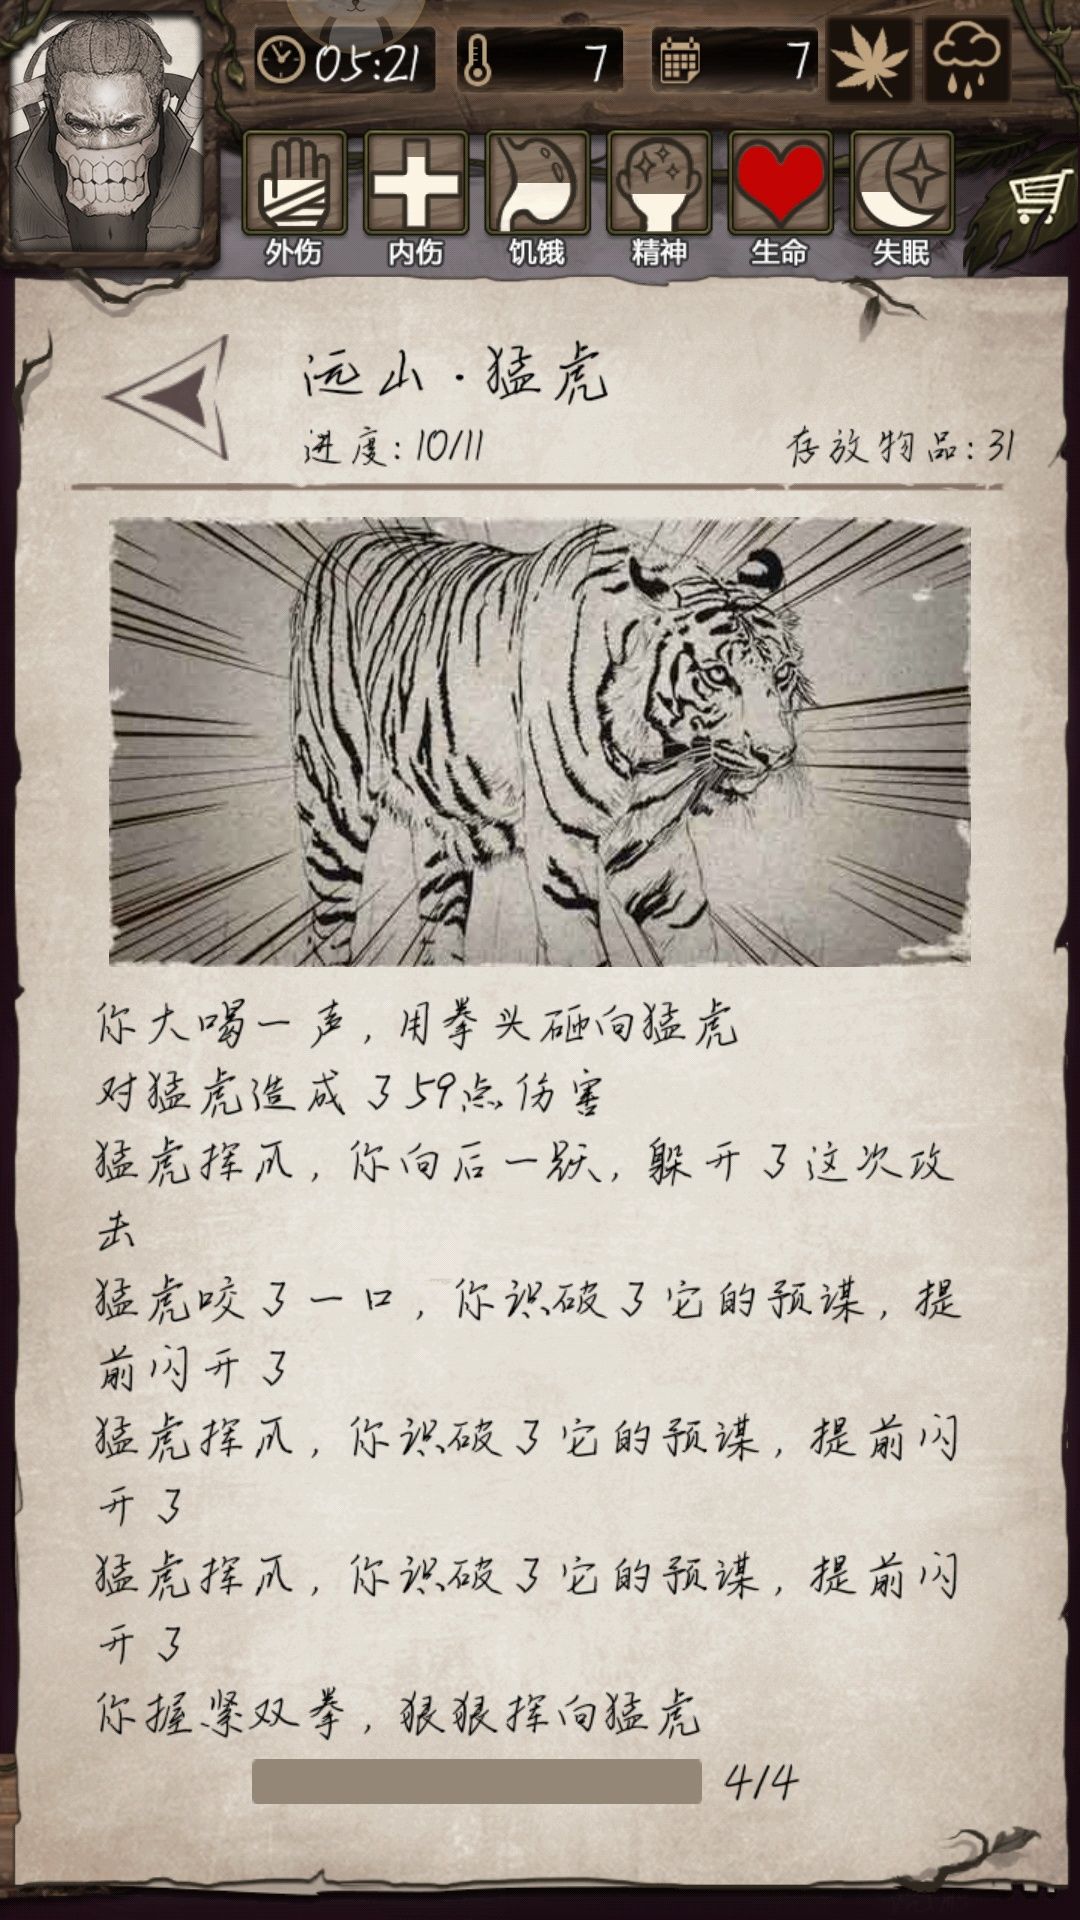 05:21
7
7
外伤
内伤
饥饿
精神
生命
失眠
远山·猛虎
进度:10/11
存放物品:31
你大喝一声,用拳头砸向猛虎
对猛虎造成了59点伤害
猛虎挥爪,你向后一跃,躲开了这次攻
击
猛虎咬了一口,你识破了它的预谋,提
前闪开了
猛虎挥爪,你识破了它的预谋,提前闪
开了
猛虎挥爪,你识破了它的预谋,提前闪
开了
你握紧双拳,狠狠挥向猛虎
4/4